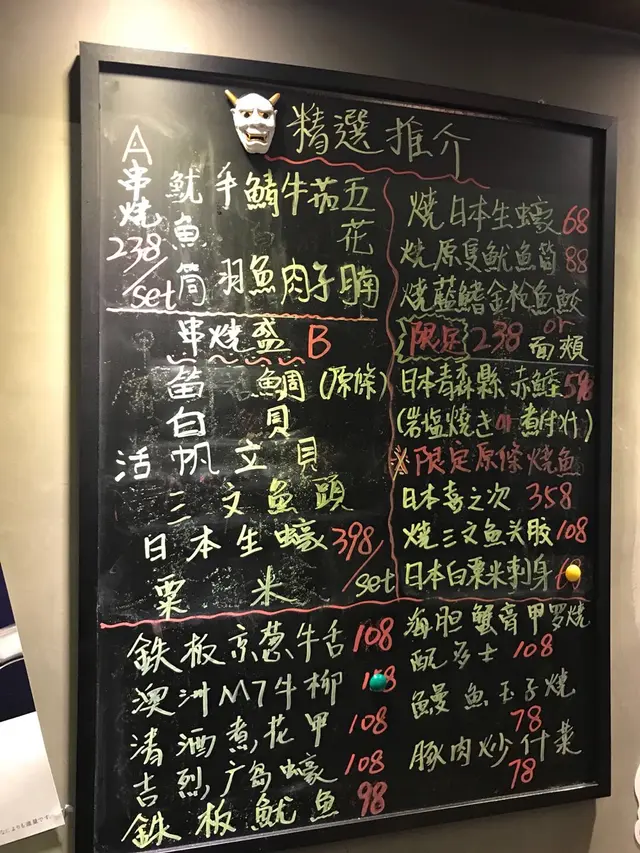 精選推介
A
串燒
238/set
魷魚筒
羽
鯖魚
牛肉
茄子
五花腩
串燒盛 B
鯛 (原條)
白貝
活帆立貝
三文魚頭
日本生蠔
粟米
398/set
燒日本生蠔 68
燒原隻魷魚筒 88
燒藍鰭金槍魚鮫
or
限定 238 面頰
日本青森縣赤鮭
(岩塩燒き or 煮付け)
※限定原條燒魚
日本喜之次 358
燒三文魚头腩 108
日本白粟米刺身
鉄板京葱牛舌 108
澳洲M7牛柳
清酒煮花甲 108
吉烈广岛蠔 108
鉄板魷魚 98
海胆蟹膏甲罗燒
配多士 108
鰻魚玉子燒
78
豚肉炒什菜
78